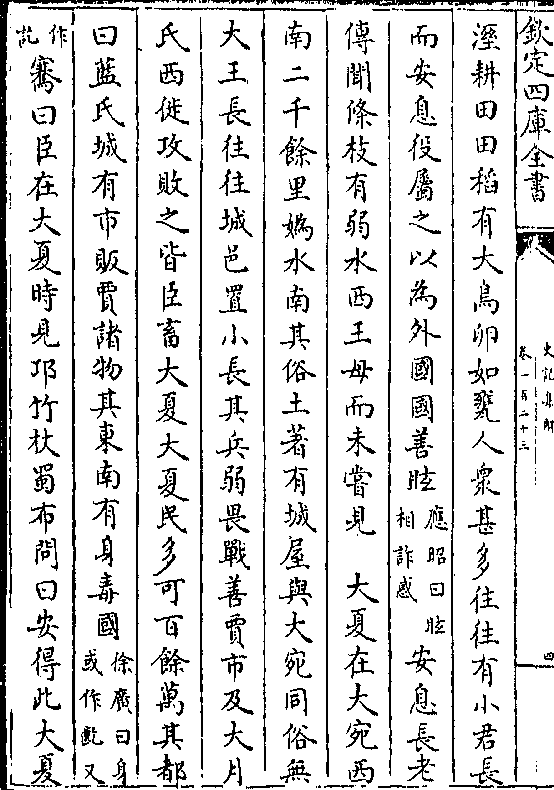 欽定四庫全書
史記集解
卷一百二十三
四
溼耕田田稻有大鳥卵如甕人衆甚多往往有小君長
而安息役屬之以為外國國善眩應昭曰眩相詐惑安息長老
傳聞條枝有弱水西王母而未嘗見　大夏在大宛西
南二千餘里媯水南其俗土著有城屋與大宛同俗無
大王長往往城邑置小長其兵弱畏戰善賈市及大月
氏西徙攻敗之皆臣畜大夏大夏民多可百餘萬其都
曰藍氏城有市販賈諸物其東南有身毒國徐廣曰身或作䡅又
作訖騫曰臣在大夏時見邛竹杖蜀布問曰安得此大夏